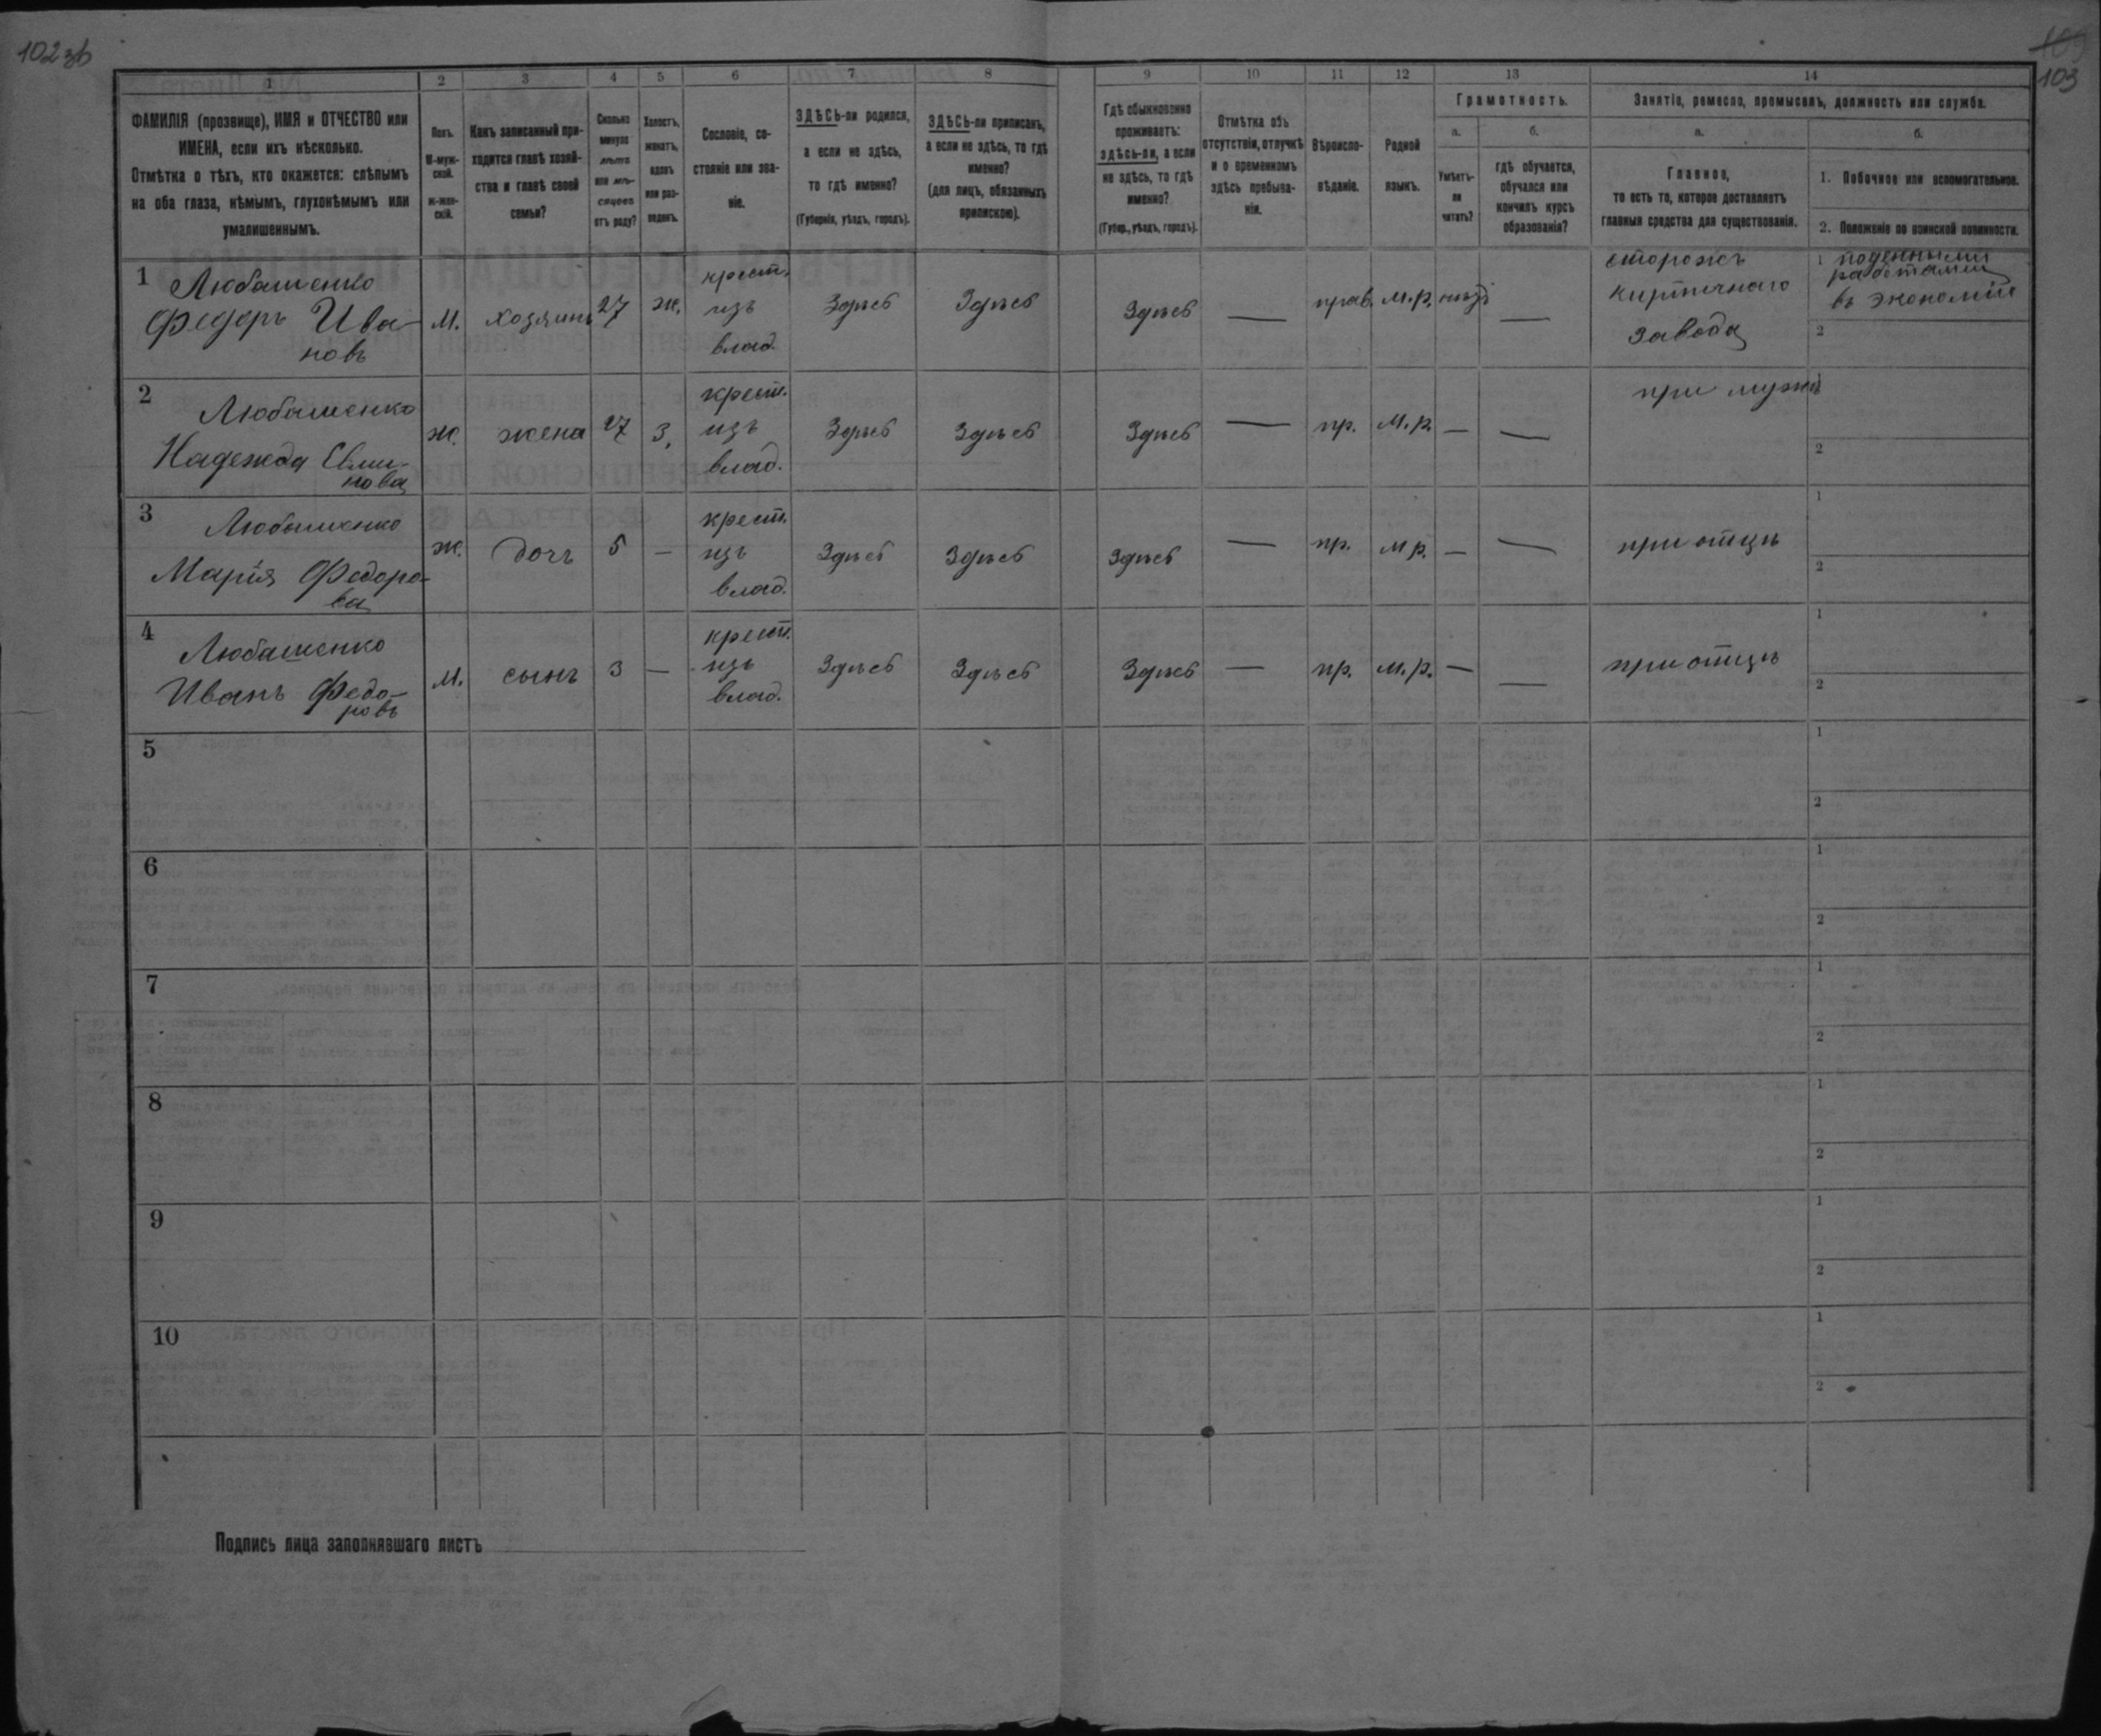 102 зв
109
103
1
2
3
4
5
6
7
8
9
10
11
12
13
14
ФАМИЛІЯ (прозвище), ИМЯ и ОТЧЕСТВО или
ИМЕНА, если ихъ нѣсколько.
Отмѣтка о тѣхъ, кто окажется: слѣпымъ
на оба глаза, нѣмымъ, глухонѣмымъ или
умалишеннымъ.
Полъ.
М-муж-
ской.
Ж-жен-
скій.
Какъ записанный при-
ходится главѣ хозяй-
ства и главѣ своей
семьи?
Сколько
минуло
лѣтъ
или мѣ-
сяцевъ
отъ роду?
Холостъ,
женатъ,
вдовъ
или раз-
веденъ.
Сословіе, со-
стояніе или зва-
ніе.
ЗДѢСЬ-ли родился,
а если не здѣсь,
то гдѣ именно?
(Губернія, уѣздъ, городъ).
ЗДѢСЬ-ли приписанъ,
а если не здѣсь, то гдѣ
именно?
(для лицъ, обязанныхъ
припискою).
Гдѣ обыкновенно
проживаетъ:
здѣсь-ли, а если
не здѣсь, то гдѣ
именно?
(Губер., уѣздъ, городъ).
Отмѣтка объ
отсутствіи, отлучкѣ
и о временномъ
здѣсь пребыва-
ніи.
Вѣроиспо-
вѣданіе.
Родной
языкъ.
Грамотность.
а.
б.
Умѣетъ-
ли
читать?
гдѣ обучается,
обучался или
кончилъ курсъ
образованія?
Занятіе, ремесло, промыселъ, должность или служба.
а.
б.
Главное,
то есть то, которое доставляетъ
главныя средства для существованія.
1. Побочное или вспомогательное.
2. Положеніе по воинской повинности.
1 Любашенко
Федоръ Ива-
новъ
М.
хозяинъ
27
ж.
крест.
изъ
влад.
Здѣсь
Здѣсь
Здѣсь
—
прав.
М.р.
нѣтъ
—
сторожъ
кирпичнаго
завода
1 поденными
работами
въ экономіи
2
2 Любашенко
Надежда
нова
ж.
жена
27
з.
крест.
изъ
влад.
Здѣсь
Здѣсь
Здѣсь
—
пр.
М.р.
—
—
при мужѣ
1
2
3 Любашенко
Марія Федоро-
ва
ж.
дочь
5
—
крест.
изъ
влад.
Здѣсь
Здѣсь
Здѣсь
—
пр.
м р.
—
—
при отцѣ
1
2
4 Любашенко
Иванъ Федо-
ровъ
м.
сынъ
3
—
крест.
изъ
влад.
Здѣсь
Здѣсь
Здѣсь
—
пр.
м.р.
—
—
при отцѣ
1
2
5
1
2
6
1
2
7
1
2
8
1
2
9
1
2
10
1
2
Подпись лица заполнявшаго листъ